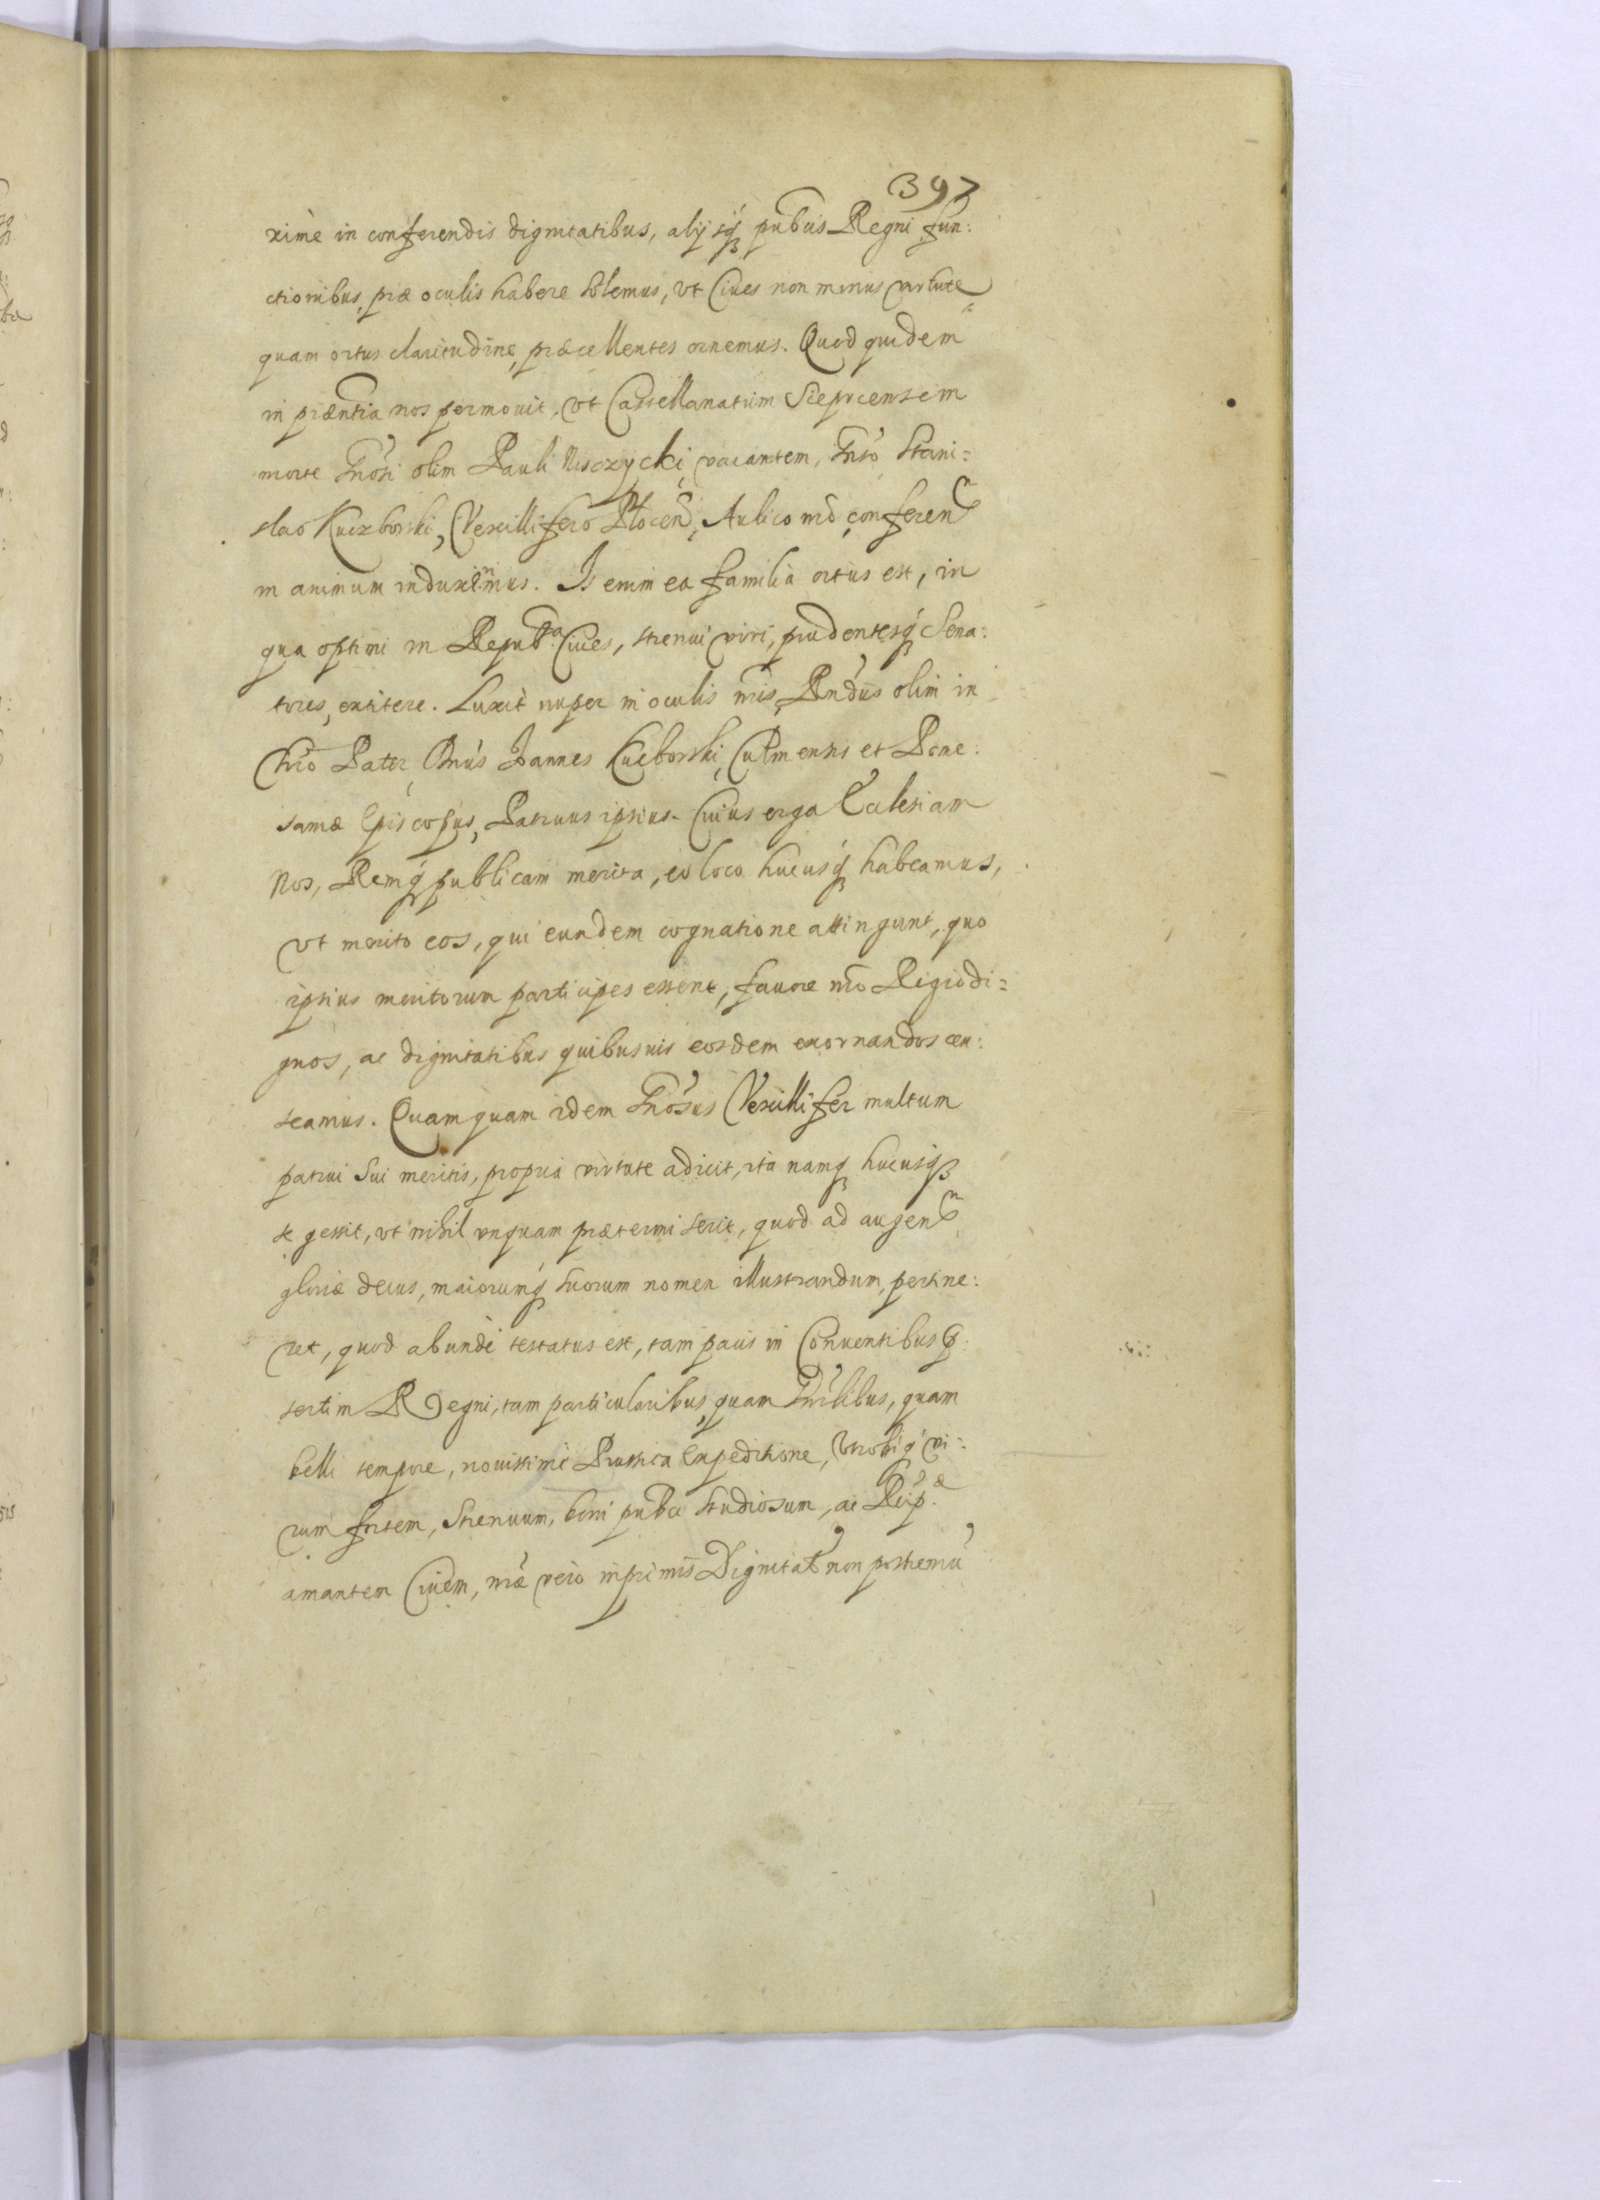 397
ximè in conferendis dignitatibus, alijsq́ꝫ pub͠cis Regni fun:
ctionibus, præ oculis habere solemus, vt Ciues non minus virtute
quam ortus claritudine, præcellentes ornemus. Quod quidem
in præn͠tia nos permouit, vt Castellanatum Sieprcensem
morte Gn͠osi olim Pauli Nisczycki, vacantem, Gn͠so Stani=
slao Kuczborski, Vexillifero Plocen͠, Aulico nr͠o, conferen͠
in animum induximus. Is enim ea familia ortus est, in
qua optimi in Repub͠ca Ciues, strenui viri, prudentesq́ Sena:
tores, extitere. Luxit nuper in oculis nr͠is, Rn͠dus olim in
Chr͠o Pater, Dn͠us Joannes Kucborski, Culmensis et Pome:
samæ Episcopus, Patruus ipsius. Cuius erga Ecclesiam
Nos, Remq́ publicam merita, eo loco hucusq́ꝫ habeamus,
vt merito eos, qui eundem cognatione attingunt, quo
ipsius meritorum participes essent, fauore nr͠o Regio di=
gnos, ac dignitatibus quibusuis eosdem exornandos cen:
seamus. Quamquam idem Gn͠osus Vexillifer multum
patrui sui meritis, propria virtute adicit, ita namq́ꝫ hucusq́ꝫ
se gessit, vt nihil vnquam prætermiserit, quod ad augen͠
gloriæ decus, maiorumq́ꝫ suorum nomen illustrandum, pertine:
ret, quod abundè testatus est, tam pacis in Conuentibus p:
sertim Regni, tam particularibus, quam Gn͠rlibus, quam
belli tempore, nouissimè Prussica Expeditione, Vtrobiq́ vi:
rum fortem, Strenuum, boni pub͠ci studiosum, ac Reip.æ
amantem Ciuem, nr͠æ vero inprimis Dignitat͠ non postremu͠